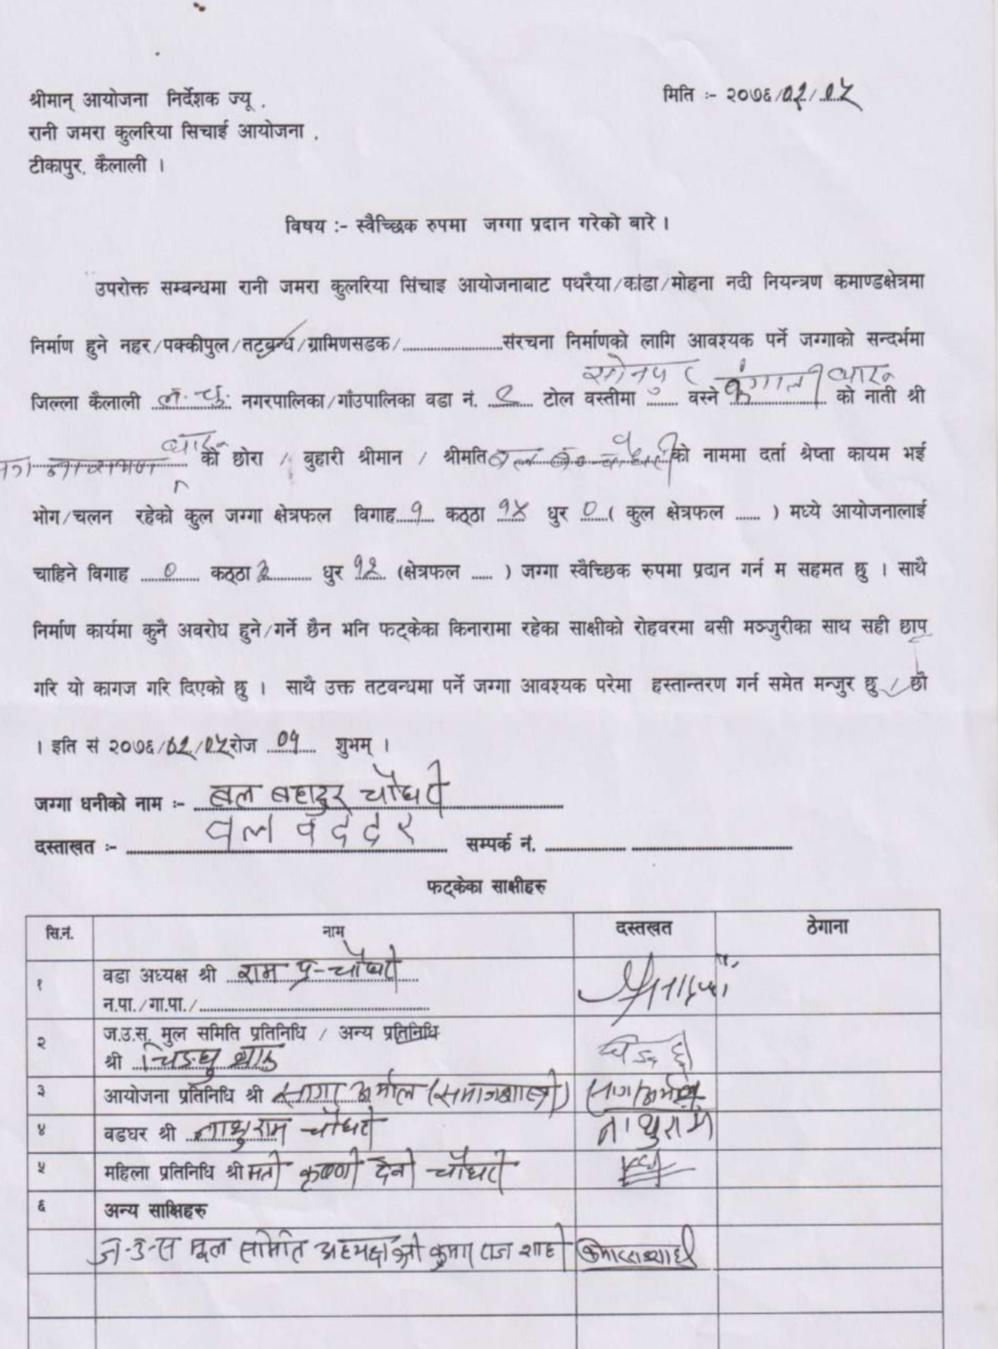 श्रीमान् आयोजना निर्देशक ज्यू .
मिति :- २०७६/०२/०५
रानी जमरा कुलरिया सिचाई आयोजना .
टीकापुर, कैलाली ।
विषय :- स्वैच्छिक रुपमा जग्गा प्रदान गरेको बारे ।
उपरोक्त सम्बन्धमा रानी जमरा कुलरिया सिंचाइ आयोजनाबाट पथरैया/कांडा/मोहना नदी नियन्त्रण कमाण्डक्षेत्रमा
निर्माण हुने नहर/पक्कीपुल/तटबन्ध/ग्रामिणसडक/....................संरचना निर्माणको लागि आवश्यक पर्ने जग्गाको सन्दर्भमा
जिल्ला कैलाली नगरपालिका/गाँउपालिका वडा नं. टोल वस्तीमा सोनपुर वस्ने को नाती श्री
को छोरा / बुहारी श्रीमान / श्रीमति को नाममा दर्ता श्रेष्ता कायम भई
भोग/चलन रहेको कुल जग्गा क्षेत्रफल विगाह १ कठ्ठा धुर ० ( कुल क्षेत्रफल ...... ) मध्ये आयोजनालाई
चाहिने विगाह ० कठ्ठा धुर १२ (क्षेत्रफल ..... ) जग्गा स्वैच्छिक रुपमा प्रदान गर्न म सहमत छु । साथै
निर्माण कार्यमा कुनै अवरोध हुने/गर्ने छैन भनि फट्केका किनारामा रहेका साक्षीको रोहवरमा बसी मञ्जुरीका साथ सही छाप
गरि यो कागज गरि दिएको छु । साथै उक्त तटवन्धमा पर्ने जग्गा आवश्यक परेमा हस्तान्तरण गर्न समेत मन्जुर छु / छौ
। इति सं २०७६/०२/०५ रोज ०१ शुभम् ।
जग्गा धनीको नाम :- बल बहादुर चौधरी
दस्ताखत :- सम्पर्क नं. ....................
फट्केका साक्षीहरु
सि.नं. नाम दस्तखत ठेगाना
१ वडा अध्यक्ष श्री राम प्र- चौधरी
न.पा./गा.पा./....................
२ ज.उ.स. मुल समिति प्रतिनिधि / अन्य प्रतिनिधि
श्री
३ आयोजना प्रतिनिधि श्री (समाजशास्त्री)
४ वडघर श्री नाथुराम चौधरी नाथुराम
५ महिला प्रतिनिधि श्रीमती कृष्णी देवी चौधरी
६ अन्य साक्षिहरु
ज-उ-स मूल समिति अध्यक्ष श्री कुमार राज शाह